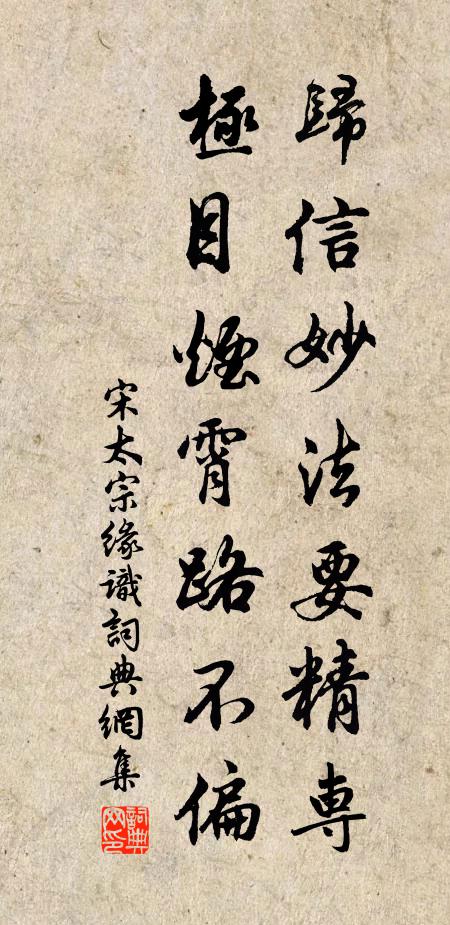 歸信妙法要精専
極目煙霄路不偏
宋太宗緣識詞典網集
詞典網印